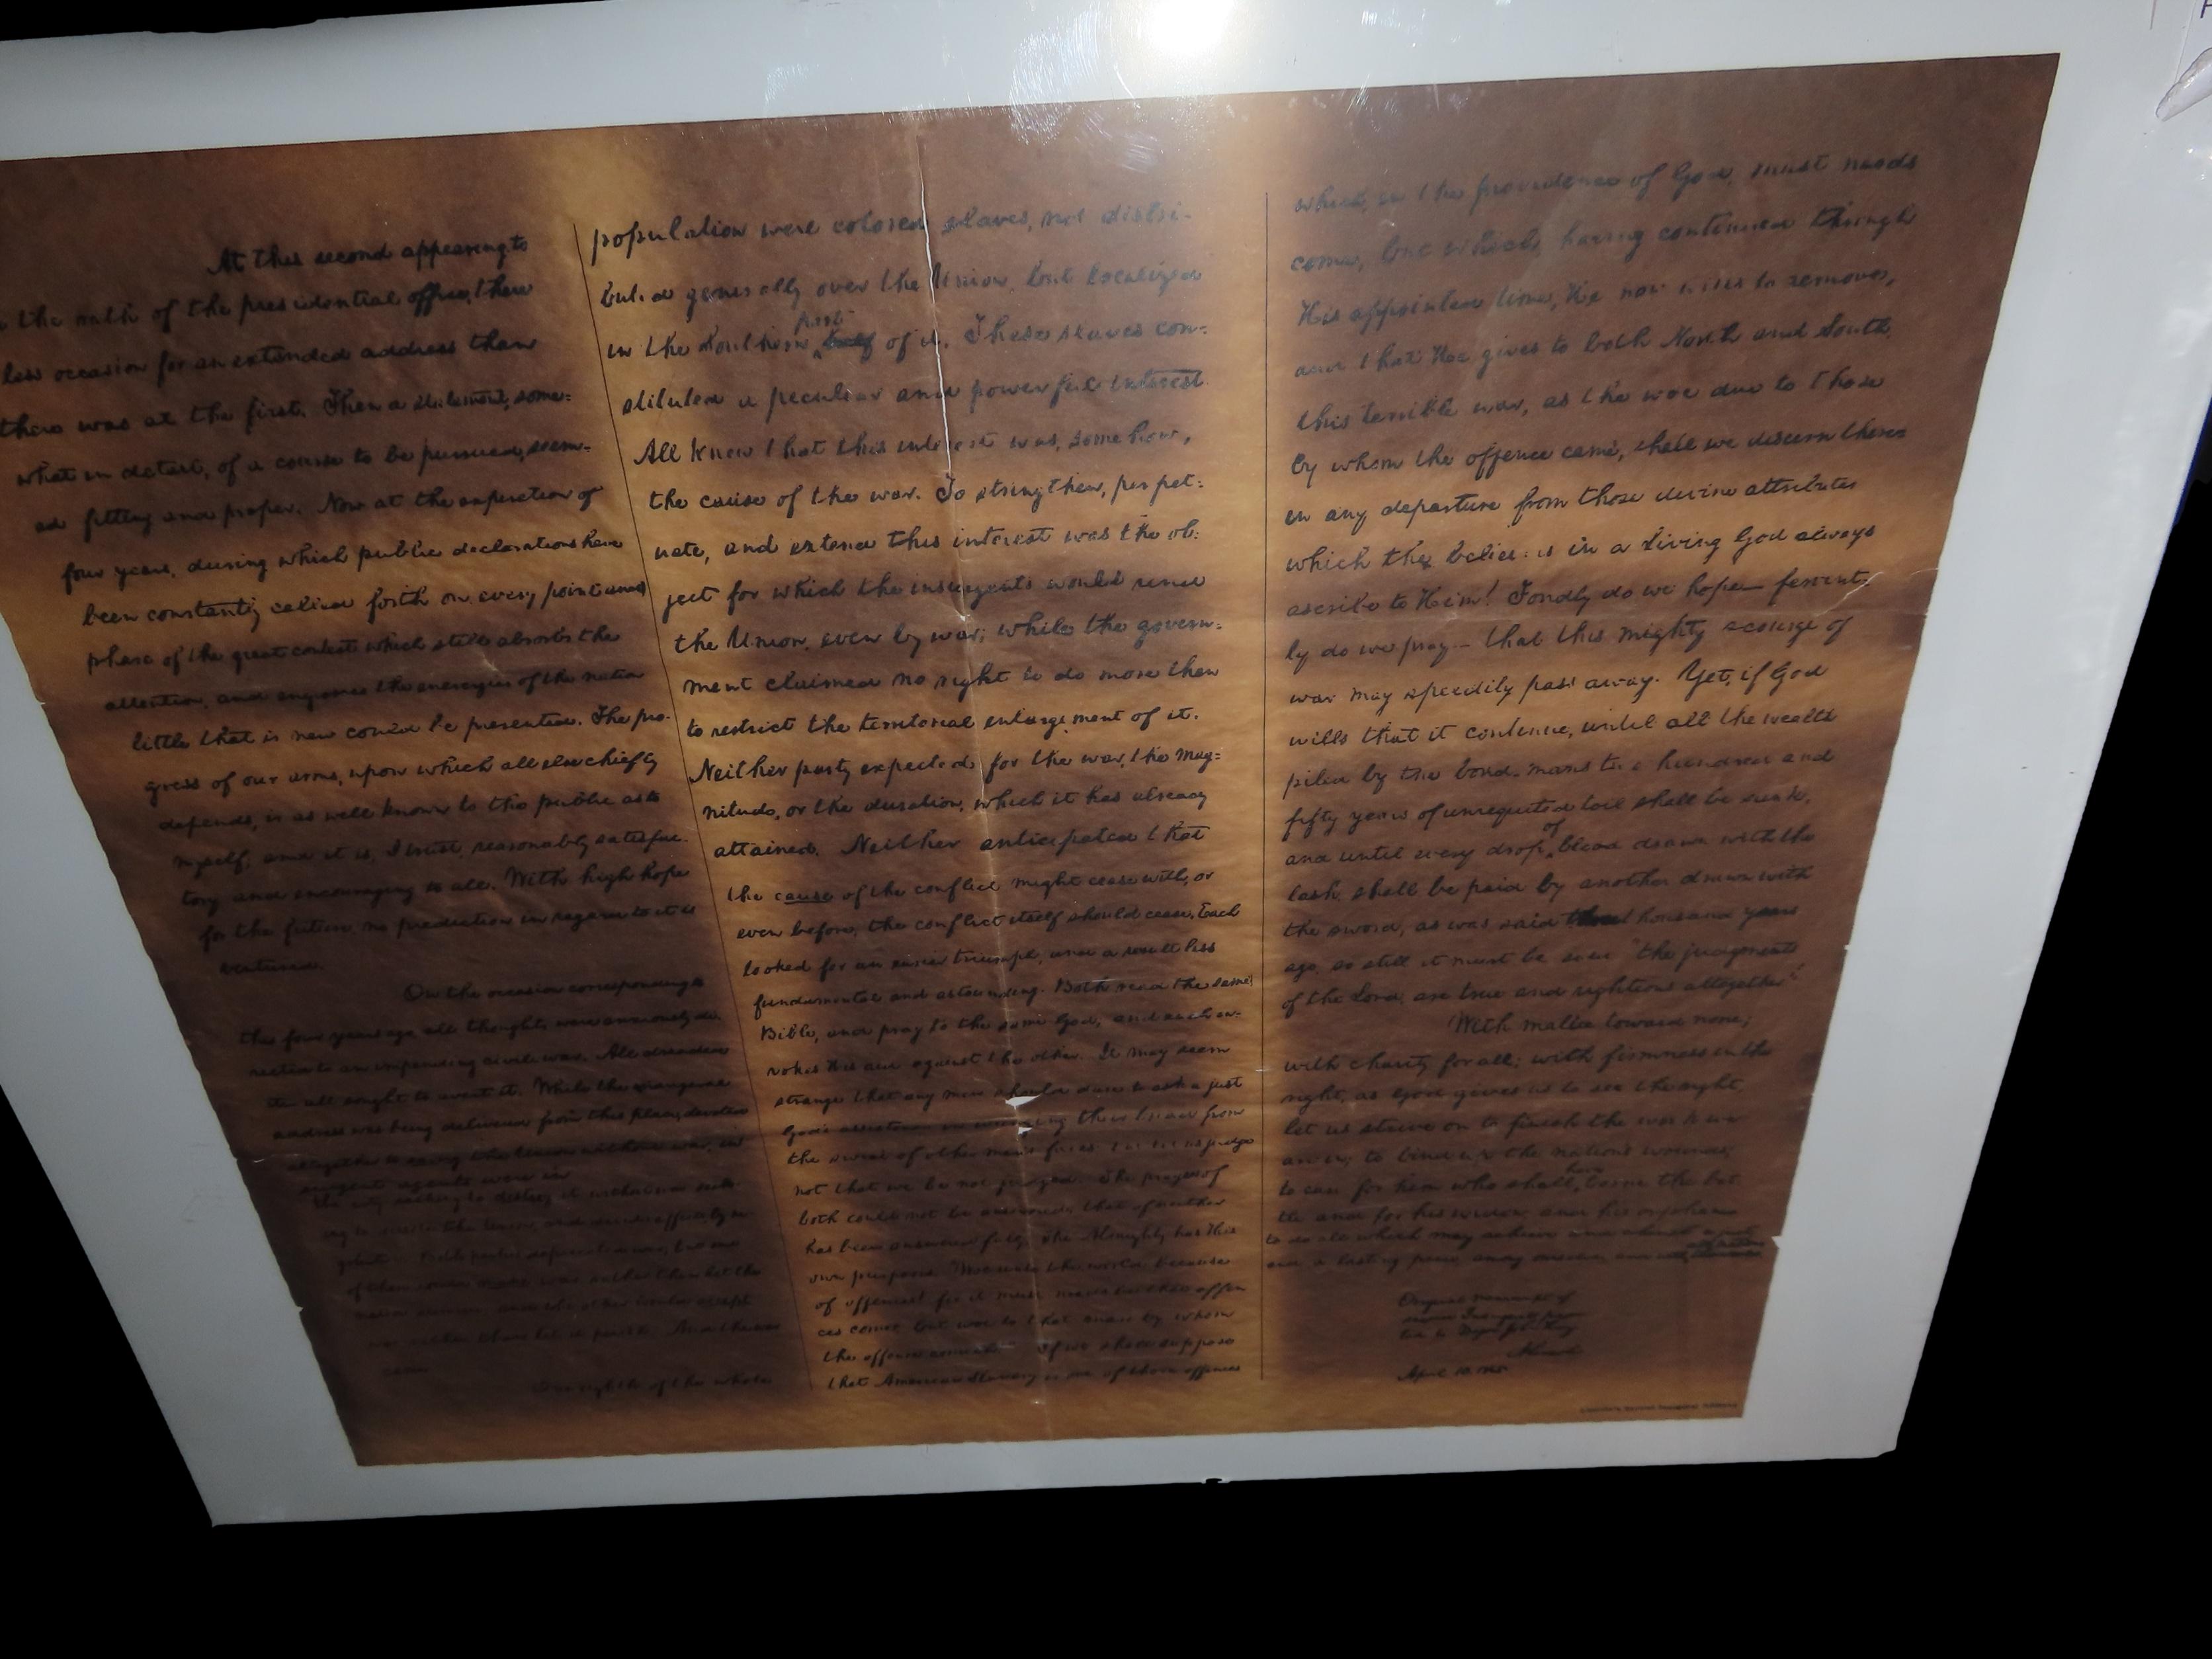 At this second appearing to
the oath of the presidential office, there
less occasion for an extended address than
there was at the first. Then a statement, some-
what in detail, of a course to be pursued, seem-
ed fitting and proper. Now at the expiration of
four years, during which public declarations have
been constantly called forth on every point and
phase of the great contest which still absorbs the
attention, and engrosses the energies of the nation
little that is new could be presented. The pro-
gress of our arms, upon which all else chiefly
depends, is as well known to the public as to
myself; and it is, I trust, reasonably satisfac-
tory and encouraging to all. With high hope
for the future, no prediction in regard to it is
ventured.
On the occasion corresponding to
this four years ago, all thoughts were anxiously di-
rected to an impending civil war. All dreaded
it all sought to avert it. While the inaugural
address was being delivered from this place, devoted
altogether to saving the Union without war, in
surgent agents were in
the city seeking to destroy it without war seek-
ing to dissolve the Union, and divide effects, by ne-
gotiation. Both parties deprecated war; but one
of them would make war rather than let the
nation survive; and the other would accept
war rather than let it perish. And the war
came.
One eighth of the whole
population were colored slaves, not distri-
buted generally over the Union, but localized
in the Southern part half of it. These slaves con-
stituted a peculiar and powerful interest
All knew that this interest was, somehow,
the cause of the war. To strengthen, perpet-
uate, and extend this interest was the ob-
ject for which the insurgents would rend
the Union, even by war; while the govern-
ment claimed no right to do more than
to restrict the territorial enlargement of it.
Neither party expected for the war, the mag-
nitude, or the duration, which it has already
attained. Neither anticipated that
the cause of the conflict might cease with, or
even before, the conflict itself should cease. Each
looked for an easier triumph, and a result less
fundamental and astounding. Both read the same
Bible, and pray to the same God; and each in-
vokes His aid against the other. It may seem
strange that any men should dare to ask a just
God's assistance in wringing their bread from
the sweat of other men's faces but let us judge
not that we be not judged. The prayers of
both could not be answered; that of neither
has been answered fully. The Almighty has His
own purposes. "Woe unto the world because
of offences! for it must needs be that offen-
ces come; but woe to that man by whom
the offence cometh!" If we shall suppose
that American Slavery is one of those offences
which, in the providence of God, must needs
come, but which, having continued through
His appointed time, He now wills to remove,
and that He gives to both North and South,
this terrible war, as the woe due to those
by whom the offence came, shall we discern therein
in any departure from those divine attributes
which the believers in a Living God always
ascribe to Him! Fondly do we hope— fervent-
ly do we pray— that this mighty scourge of
war may speedily pass away. Yet, if God
wills that it continue, until all the wealth
piled by the bond-man's two hundred and
fifty years of unrequited toil shall be sunk,
and until every drop of blood drawn with the
lash, shall be paid by another drawn with
the sword, as was said three thousand years
ago, so still it must be said "the judgments
of the Lord, are true and righteous altogether"
With malice toward none;
with charity for all; with firmness in the
right, as God gives us to see the right,
let us strive on to finish the work we
are in; to bind up the nation's wounds;
to care for him who shall have borne the bat
tle and for his widow, and his orphan—
to do all which may achieve and cherish a just
and a lasting peace, among ourselves, and with
Original manuscript of
second Inaugural presen-
ted to Major John Hay
A. Lincoln
April 10, 1865